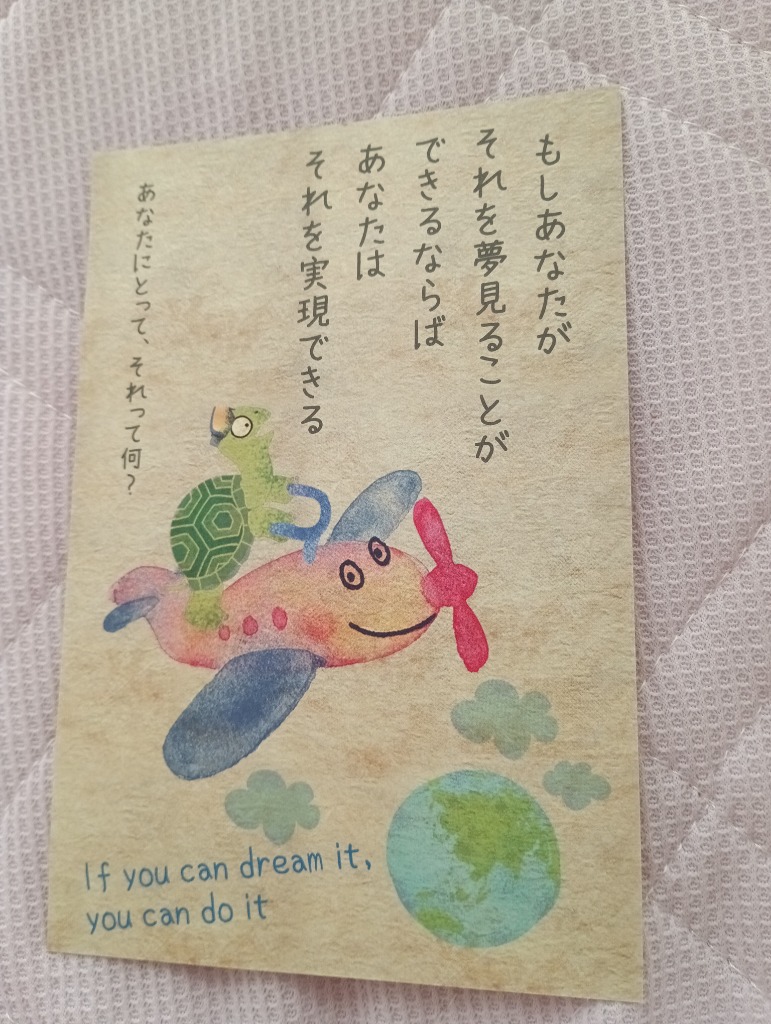 もしあなたが
それを夢見ることが
できるならば
あなたは
それを実現できる
あなたにとって、それって何？
If you can dream it,
you can do it